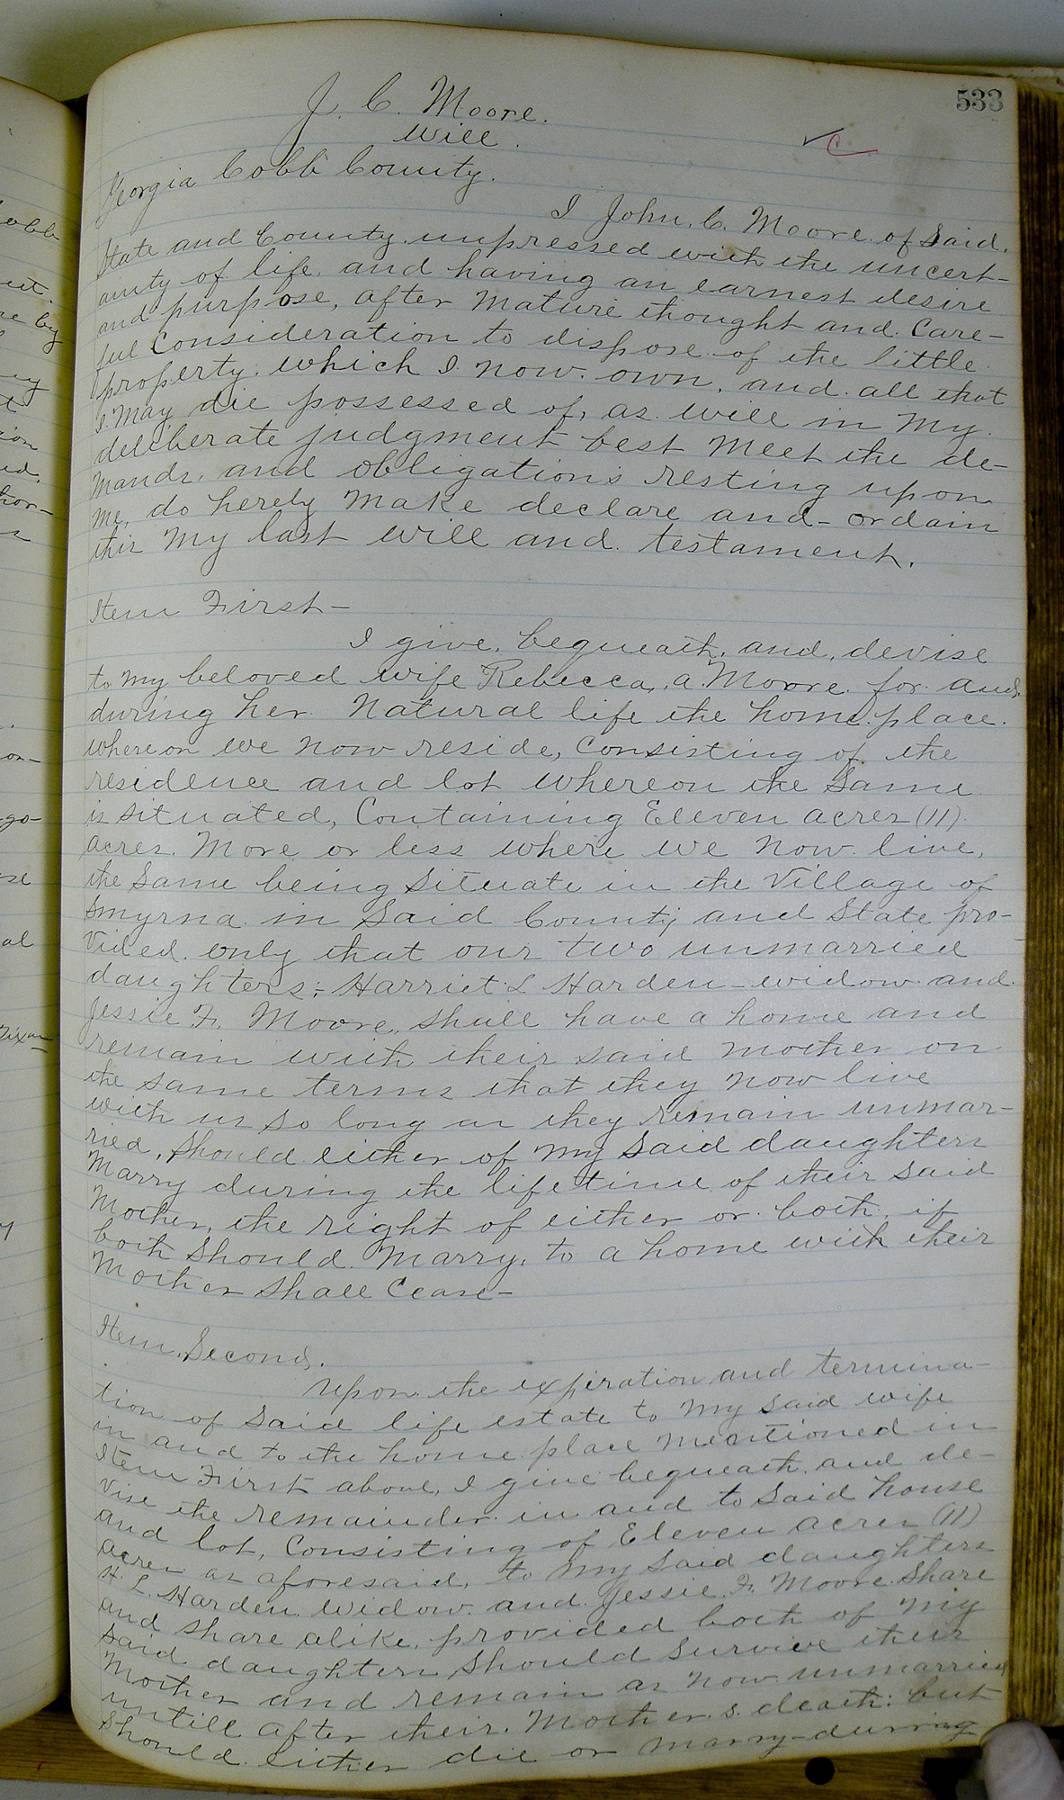 533
J. C. Moore.
Will.
C
Georgia Cobb County.
I John. C. Moore. of Said.
State and County. unpressed with the uncert-
anity of life. and having an earnest desire
and purpose, after Mature thought and. Care-
ful Consideration to dispose of the little
property. which I. now. own. and. all that
I. May die possessed of, as will in My.
deliberate judgment best Meet the de-
mands, and obligations resting upon
Me, do hereby Make declare and - ordain
this My last will and. testament.
Item First -
I give, bequeath, and, devise
to My beloved wife Rebecca. a. Moore. for and,
during her Natural life the home. place.
whereon we now reside, Consisting of the
residence and lot whereon the Same
is situated, Containing Eleven acres (11)
acres. More or less where we now live,
the Same being Situate in the Village of
Smyrna in Said County and State pro-
vided. only that our two unmarried
daughters; Harriet L Harden - widow and
Jessie F. Moore, shall have a home and
remain with their said Mother on
the same terms that they now live
with us so long as they remain unmar-
ried, Should either of My Said daughters
Marry during the life time of their said
Mother, the right of either or both, if
both Should Marry, to a home with their
Mother Shall Cease -
Item. Second.
Upon the expiration and termina-
tion of Said life estate to My Said wife
in and to the home place Mentioned in
Item First above, I give bequeath. and de-
vise the remainder in and to Said house
and lot, Consisting of Eleven acres (11)
acres as aforesaid, to My Said daughters
H. L. Harden widow. and Jessie F. Moore Share
and Share alike, provided both of My
Said daughters Should Survive their
Mother and remain as now unmarried
untill after their Mother,s death; but
Should either die or Marry during